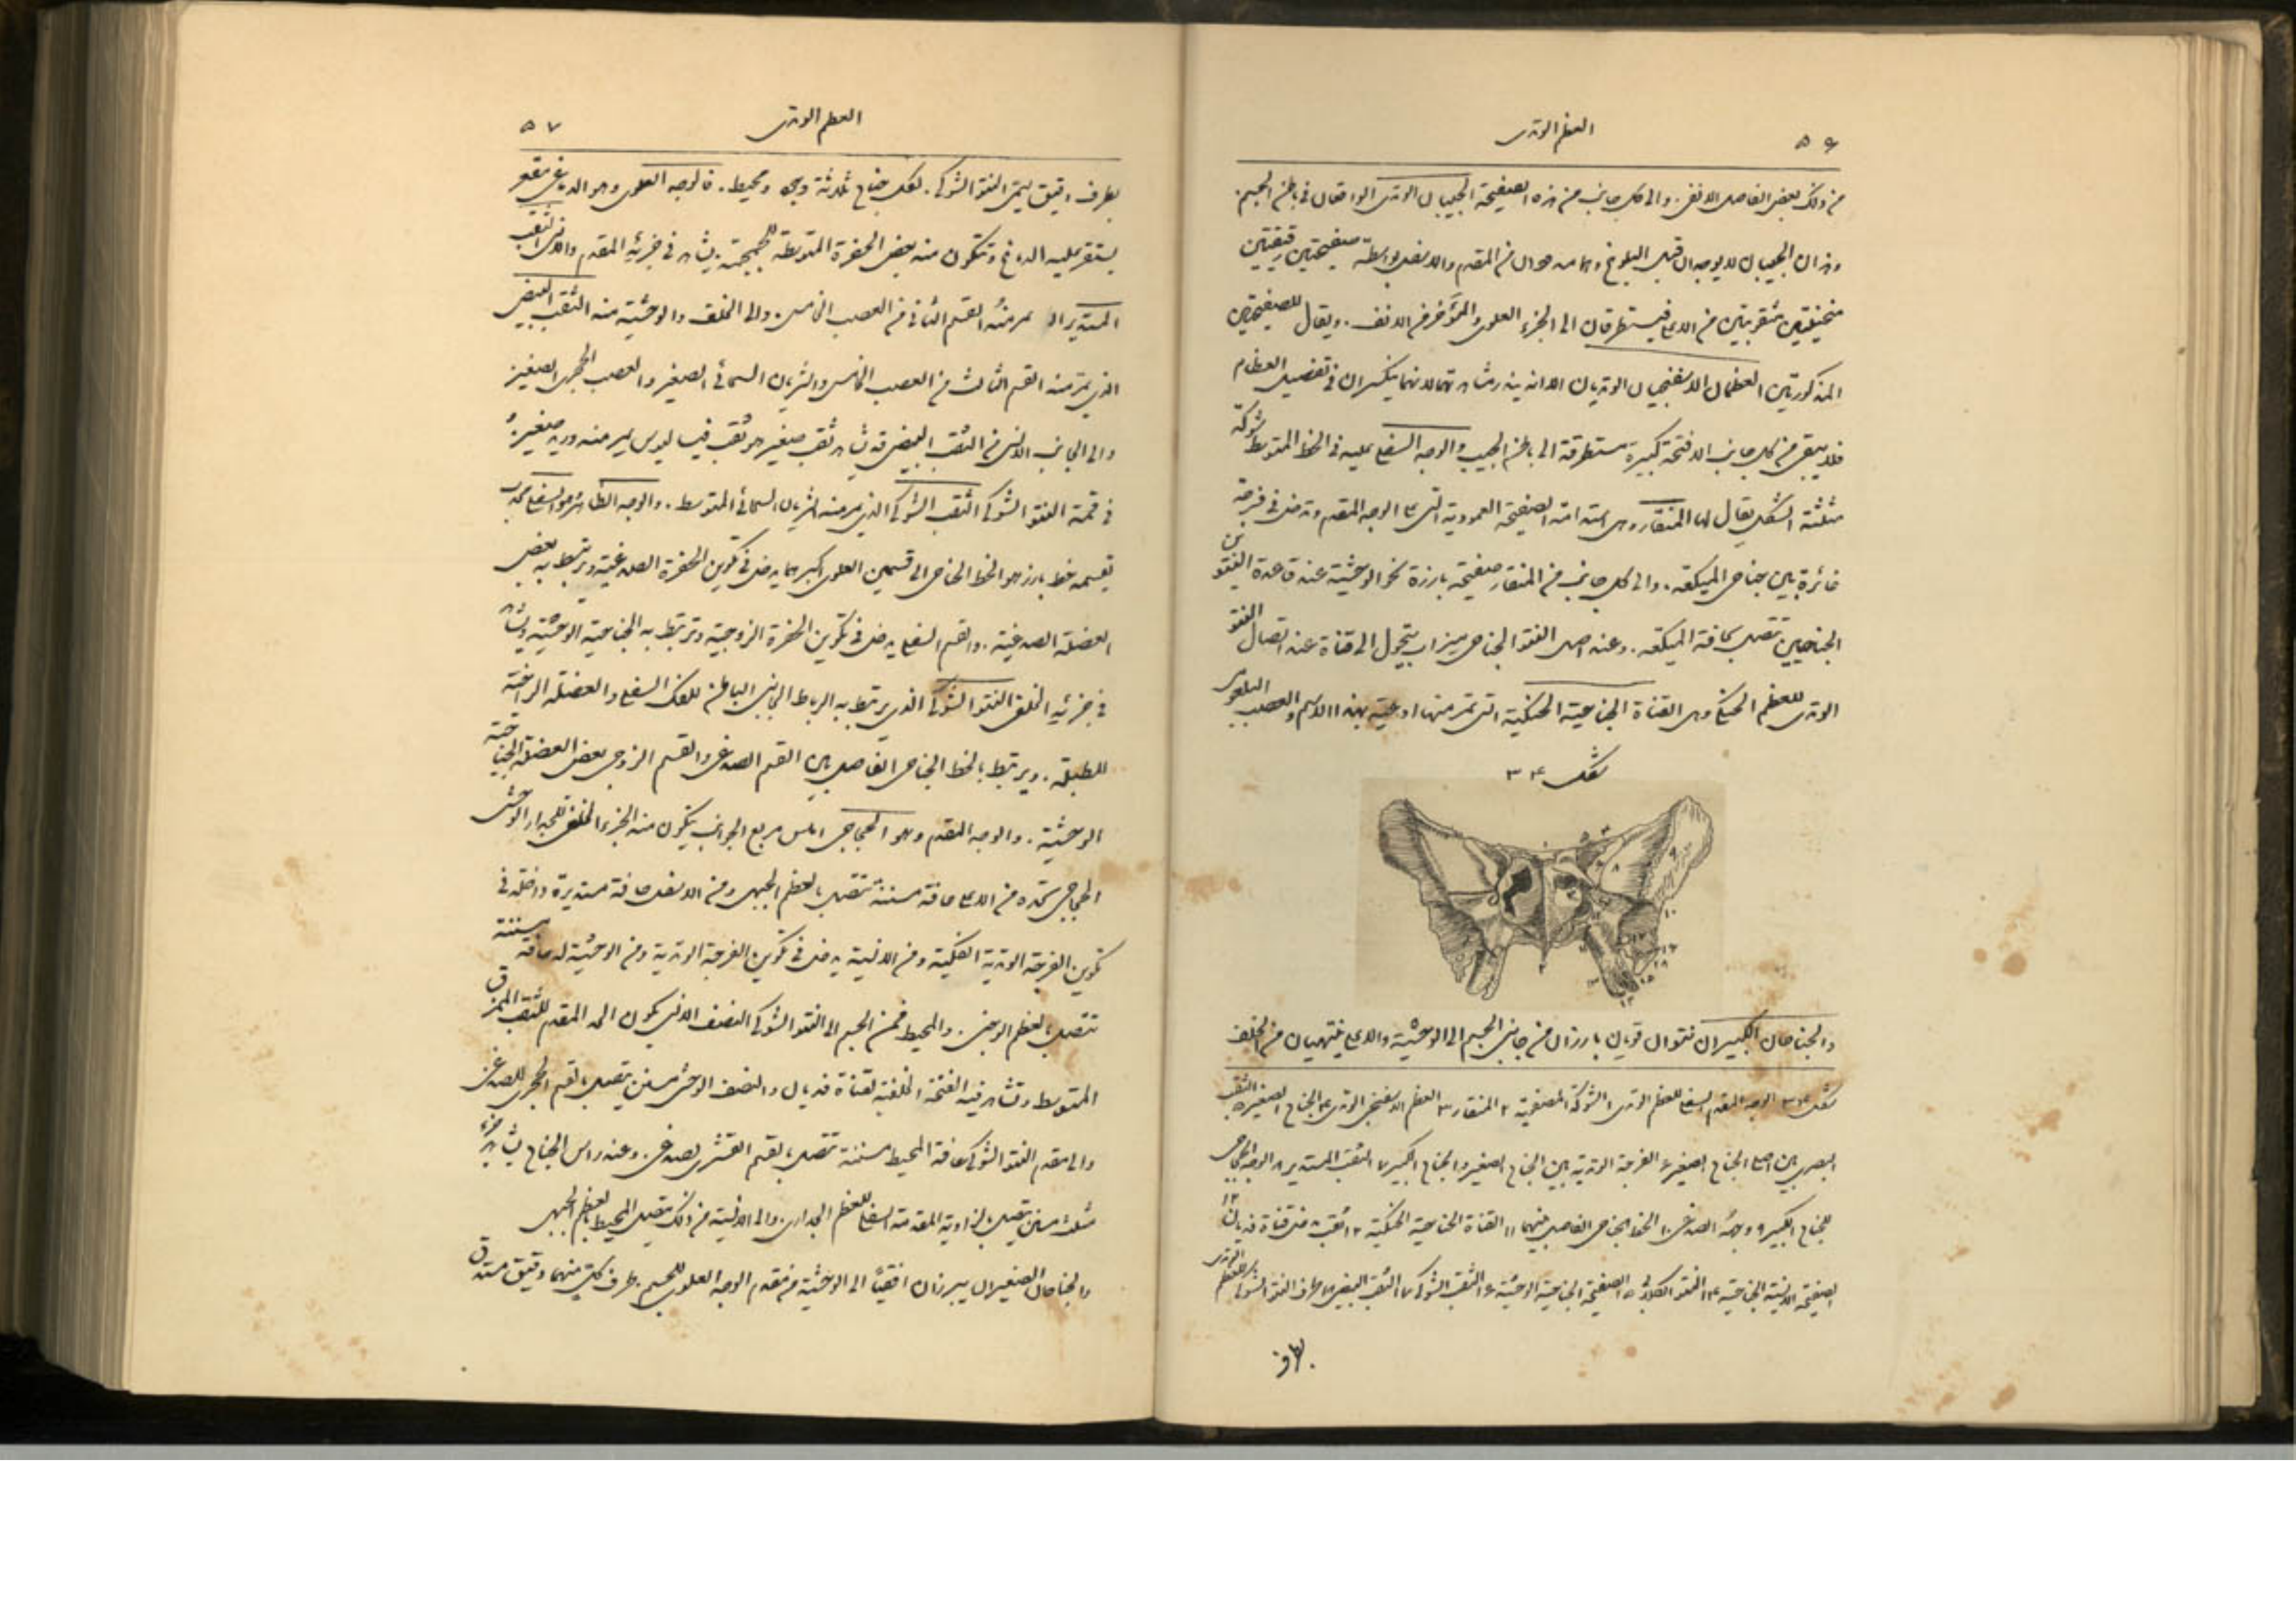 ٥٦
العظم الوتدى
من ذلك بعض الفاصل الانفى. والى كل جانب من هذه الصفيحة الجيبان الوتدى الواقعان فى باطن الجسم.
وهذان الجيبان لا يوجدان قبل البلوغ وهما من المقدم والاسفل بواسطة صفيحتين رقيقتين
منحنيتين مثقوبتين من الاعلى فيستطرقان الى الجزء العلوى والمؤخر من الانف. ويقال للصفيحتين
المذكورتين العظمان الاسفنجيان الوتديان لانهما ينكسران فى تفصيل العظام
فلا يبقى من كل جانب الا فتحة كبيرة مستطرقة الى باطن الجيب والوجه السفلى عليه فى الخط المتوسط شوكة
مثلثة الشكل يقال لها المنقار وهى امتداد الصفيحة العمودية التى على الوجه المقدم وتدخل فى فرجة
غائرة بين جناحى الميكعة. والى كل جانب من المنقار صفيحة بارزة نحو الوحشية عند قاعدة النتوين
الجناحيين تتصل بحافة الميكعة. وعند اصل النتو الجناحى ميزاب يتحول الى قناة عند اتصال النتو
الوتدى للعظم الحنكى وهى القناة الجناحية الحنكية التى تمر منها اوعية بهذا الاسم والعصب البلعومى
شكل ٣٤
والجناحان الكبيران نتوان قويان بارزان من جانبى الجسم الى الوحشية والاعلى ينتهيان من الخلف
شكل ٣٤ الوجه المقدم السفلى للعظم الوتدى ١ الشوكة المصفوية ٢ المنقار ٣ العظم الاسفنجى الوتدى ٤ الجناح الصغير ٥ الثقب
البصرى بين اصلى الجناح الصغير ٦ الفرجة الوتدية بين الجناح الصغير والجناح الكبير ٧ الثقب المستدير ٨ الوجه الحجاجى
للجناح الكبير ٩ وجهه الصدغى ١٠ الخط الجناحى الفاصل بينهما ١١ القناة الجناحية الحنكية ١٢ ثقب مدخل قناة فديان ١٣
الصفيحة الانسية الجناحية ١٤ النتو الكلابى ١٥ الصفيحة الجناحية الوحشية ١٦ الثقب الشوكى ١٧ الثقب البيضى ١٨ طرف النتو الشوكى للعظم الوتدى
بطرف
العظم الوتدى
٥٧
بطرف دقيق يسمى النتو الشوكى. لكل جناح ثلاثة وجوه ومحيط. فالوجه العلوى وهو الدماغى مقعر
يستقر عليه الدماغ وتتكون منه بعض الحفرة المتوسطة للجمجمة. يشاهد فى جزئه المقدم والانسى الثقب
المستدير الذى يمر منه القسم الثانى من العصب الخامس. والى الخلف والوحشية منه الثقب البيضى
الذى يمر منه القسم الثالث من العصب الخامس والشريان السحائى الصغير والعصب الحجرى الصغير
والى الجانب الانسى من الثقب البيضى قد يشاهد ثقب صغير هو ثقب فيساليوس يمر منه وريد صغير.
فى قمة النتو الشوكى الثقب الشوكى الذى يمر منه الشريان السحائى المتوسط. والوجه الظاهر وهو السفلى محدب
يقسمه خط بارز هو الخط الجناحى الى قسمين العلوى اكبرهما يدخل فى تكوين الحفرة الصدغية وترتبط به بعض
العضلة الصدغية. والقسم السفلى يدخل فى تكوين الحفرة الزوجية وترتبط به الجناحية الوحشية ويشاهد
فى جزئه الخلفى النتو الشوكى الذى يرتبط به الرباط الجانبى الباطن للفك السفلى والعضلة الراخية
للطبلة. ويرتبط بالخط الجناحى الفاصل بين القسم الصدغى والقسم الزوجى بعض العضلة الجناحية
الوحشية. والوجه المقدم وهو الحجاجى املس مربع الجوانب يتكون منه الجزء الخلفى للجدار الوحشى
الحجاجى تحده من الاعلى حافة مسننة تتصل بالعظم الجبهى ومن الاسفل حافة مستديرة داخلة فى
تكوين الفرجة الوتدية الفكية ومن الانسية يدخل فى تكوين الفرجة الوتدية ومن الوحشية له حافة مسننة
تتصل بالعظم الوجنى. والمحيط فمن الجسم الى النتو الشوكى النصف الانسى يكون الحد المقدم للثقب الممزق
المتوسط وتشاهد فيه الفتحة الخلفية لقناة فديان والنصف الوحشى مسنن يتصل بالقسم الحجرى للصدغى
والى مقدم النتو الشوكى حافة المحيط مسننة تتصل بالقسم القشرى للصدغى. وعند راس الجناح يشاهد جزء
مثلث مسنن يتصل بالزاوية المقدمة السفلى للعظم الجدارى والى الانسية من ذلك يتصل المحيط بالعظم الجبهى
والجناحان الصغيران يبرزان افقيًا الى الوحشية من مقدم الوجه العلوى للجسم. طرف كل منهما دقيق مستدق